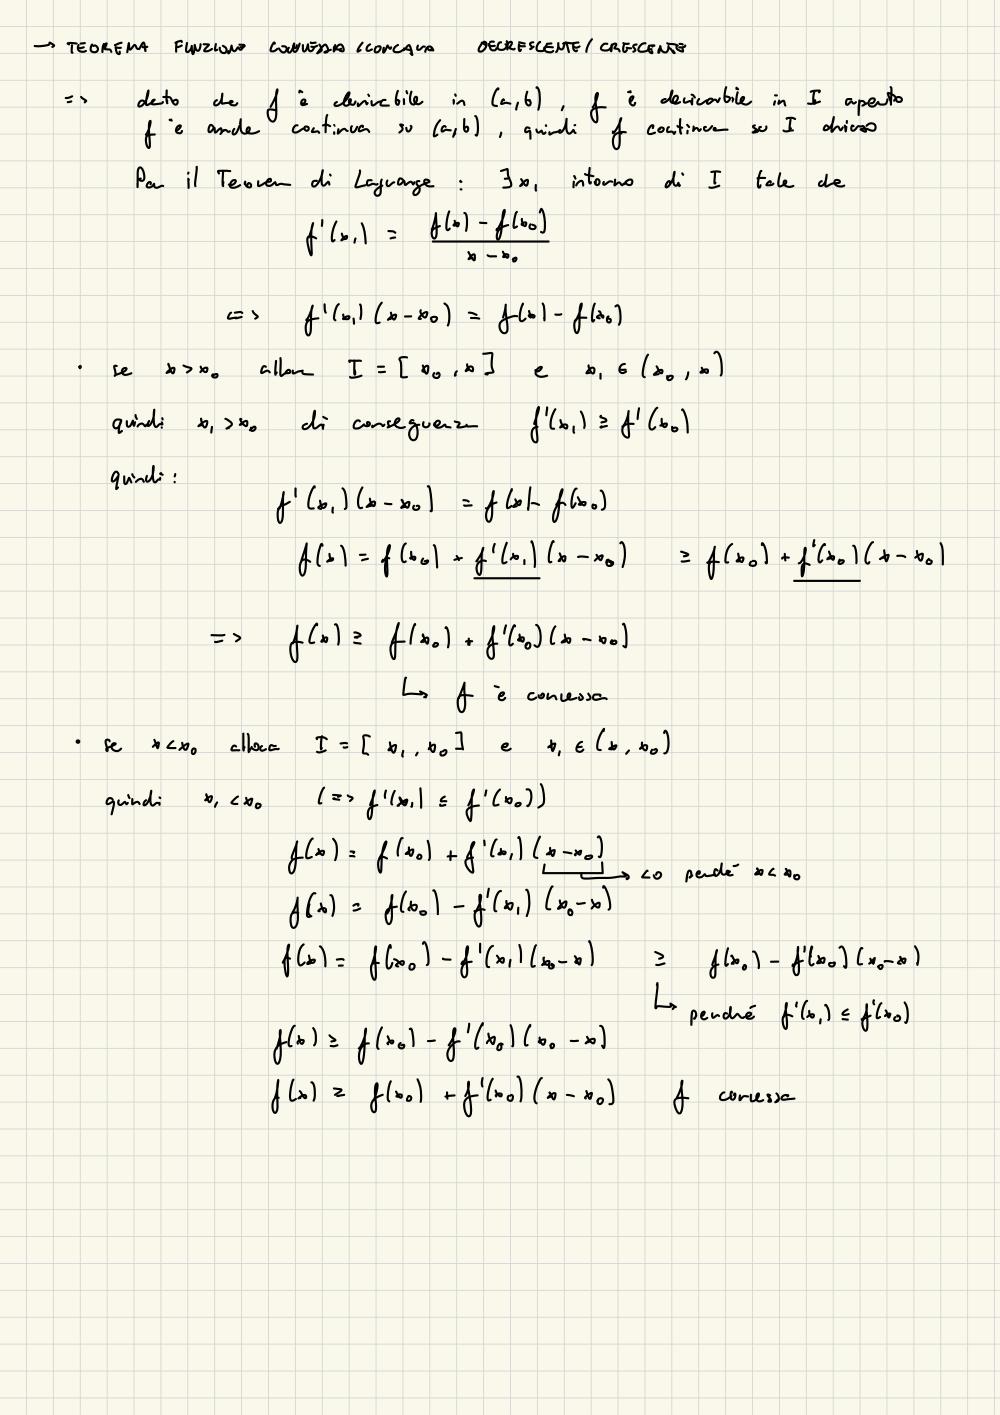 → TEOREMA FUNZIONE CONVESSA/CONCAVA DECRESCENTE/CRESCENTE
=> dato che f è derivabile in (a,b), f è derivabile in I aperto
f è anche continua su (a,b), quindi f continua su I chiuso
Per il Teorema di Lagrange : ∃ x₁ intorno di I tale che
f'(x₁) = (f(x) - f(x₀)) / (x - x₀)
<=> f'(x₁)(x - x₀) = f(x) - f(x₀)
• se x > x₀ allora I = [x₀, x] e x₁ ∈ (x₀, x)
quindi x₁ > x₀ di conseguenza f'(x₁) ≥ f'(x₀)
quindi:
f'(x₁)(x - x₀) = f(x) - f(x₀)
f(x) = f(x₀) + f'(x₁)(x - x₀) ≥ f(x₀) + f'(x₀)(x - x₀)
=> f(x) ≥ f(x₀) + f'(x₀)(x - x₀)
↳ f è convessa
• se x < x₀ allora I = [x₁, x₀] e x₁ ∈ (x, x₀)
quindi x₁ < x₀ (=> f'(x₁) ≤ f'(x₀))
f(x) = f(x₀) + f'(x₁)(x - x₀)
→ <0 perché x < x₀
f(x) = f(x₀) - f'(x₁)(x₀ - x)
f(x) = f(x₀) - f'(x₁)(x₀ - x) ≥ f(x₀) - f'(x₀)(x₀ - x)
↳ perché f'(x₁) ≤ f'(x₀)
f(x) ≥ f(x₀) - f'(x₀)(x₀ - x)
f(x) ≥ f(x₀) + f'(x₀)(x - x₀) f convessa